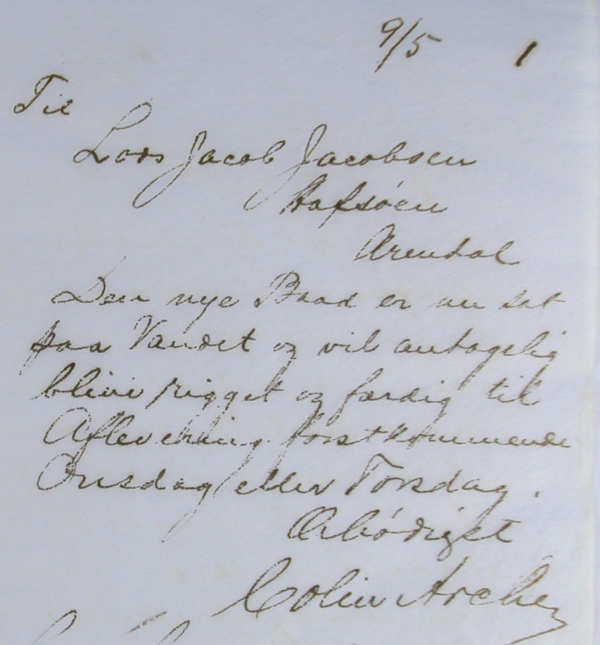 9/5 1
Til
Lods Jacob Jacobsen
Hafsöen
Arendal
Den nye Baad er nu sat
paa Vandet og vil antagelig
blive rigget og færdig til
Aflevering förstkommende
Onsdag eller Torsdag.
Ærbödigst
Colin Archer